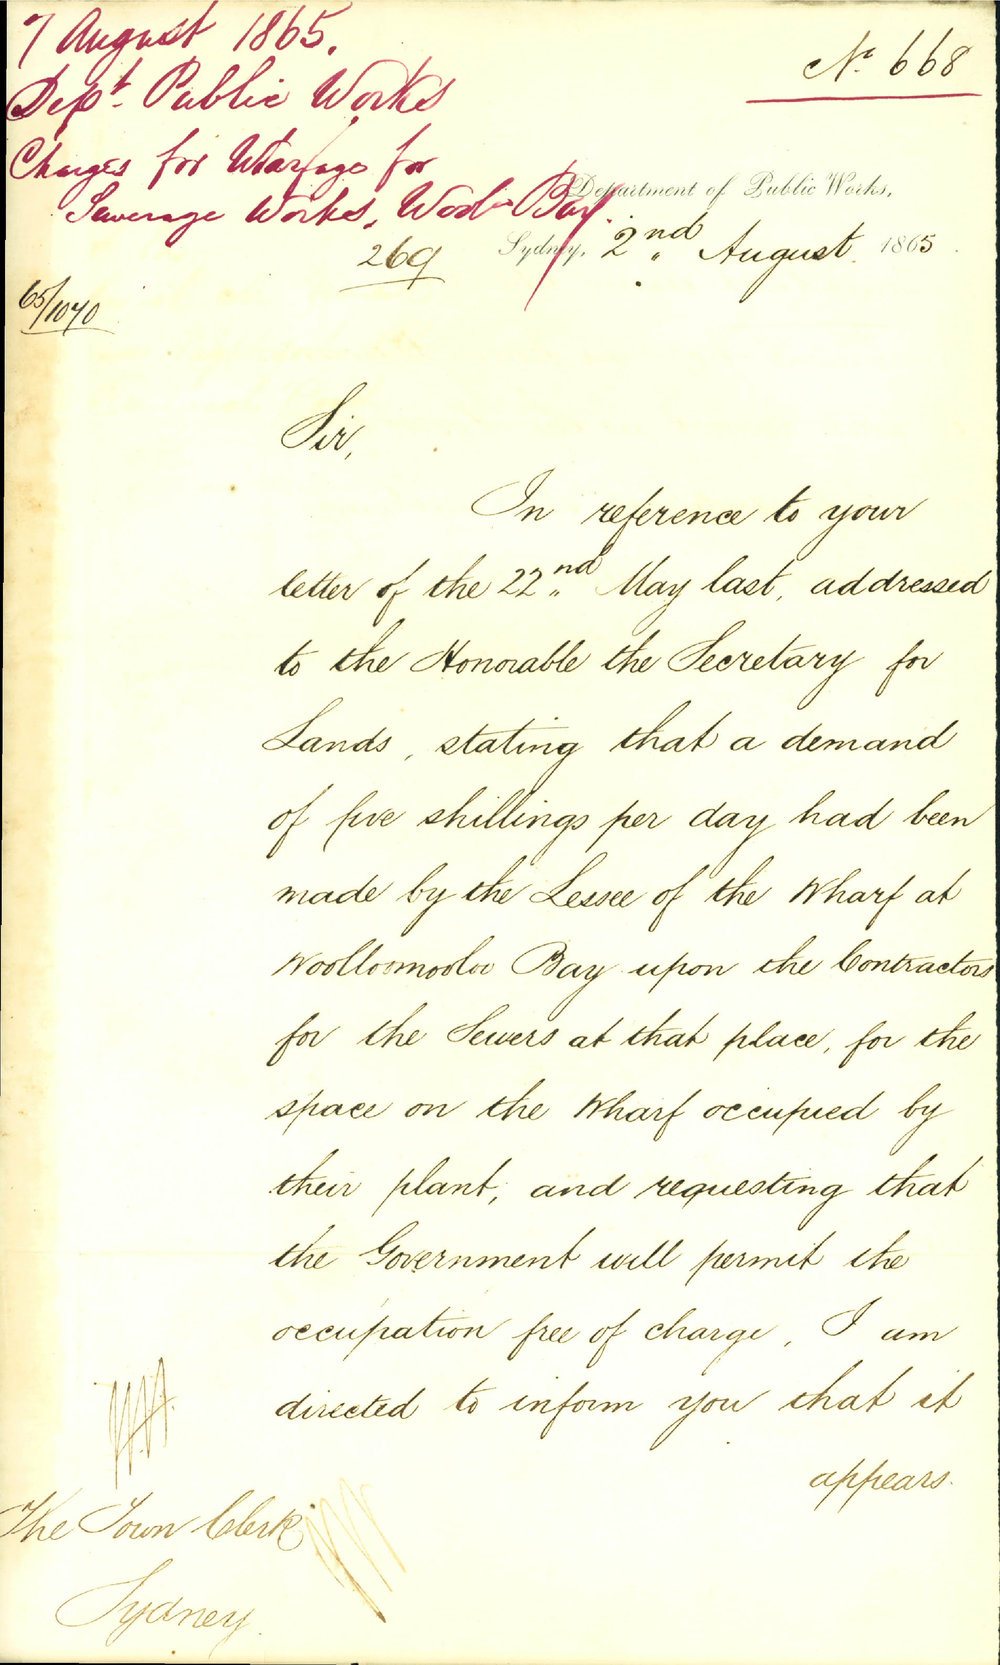 7 August 1865.
Dept. Public Works
Charges for Wharfage for
Sewerage Works, Wool- Bay.
No. 668
Department of Public Works,
Sydney, 2nd August 1865
269
65/1070
Sir,
In reference to your
letter of the 22nd May last, addressed
to the Honorable the Secretary for
Lands, stating that a demand
of five shillings per day had been
made by the Lessee of the Wharf at
Woolloomooloo Bay upon the Contractors
for the Sewers at that place, for the
space on the Wharf occupied by
their plant, and requesting that
the Government will permit the
occupation free of charge, I am
directed to inform you that it
appears.
The Town Clerk
Sydney.